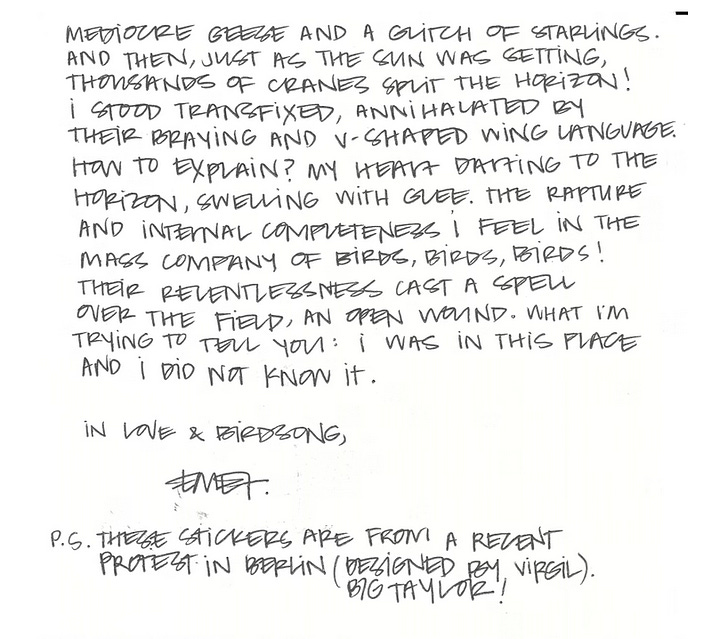 MEDIOCRE GEESE AND A GLITCH OF STARLINGS.
AND THEN, JUST AS THE SUN WAS SETTING,
THOUSANDS OF CRANES SPLIT THE HORIZON!
I STOOD TRANSFIXED, ANNIHALATED BY
THEIR BRAYING AND V-SHAPED WING LANGUAGE.
HOW TO EXPLAIN? MY HEART DARTING TO THE
HORIZON, SWELLING WITH GLEE. THE RAPTURE
AND INTERNAL COMPLETENESS I FEEL IN THE
MASS COMPANY OF BIRDS, BIRDS, BIRDS!
THEIR RELENTLESSNESS CAST A SPELL
OVER THE FIELD, AN OPEN WOUND. WHAT I'M
TRYING TO TELL YOU: I WAS IN THIS PLACE
AND I DID NOT KNOW IT.
IN LOVE & BIRDSONG,
EMET.
P.S. THESE STICKERS ARE FROM A RECENT
PROTEST IN BERLIN (DESIGNED BY VIRGIL).
BIG TAYLOR!